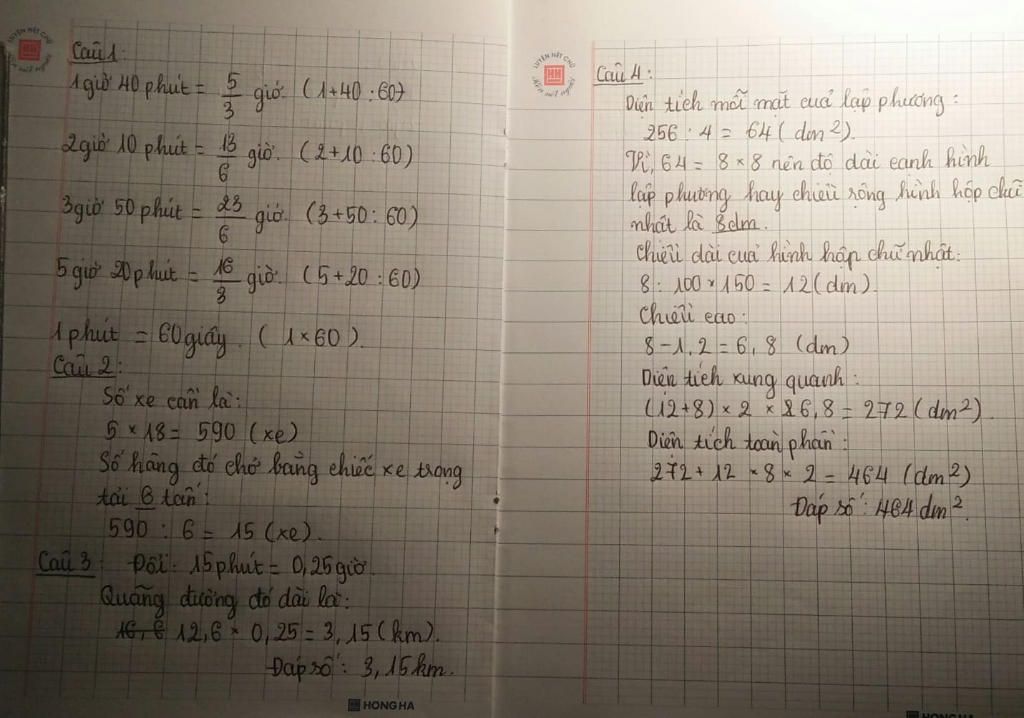 LUYỆN NÉT CHỮ
HH
Rèn nết người
Câu 1:
1 giờ 40 phút = 5/3 giờ. (1+40:60)
2 giờ 10 phút = 13/6 giờ. (2+10:60)
3 giờ 50 phút = 23/6 giờ. (3+50:60)
5 giờ 20 phút = 16/3 giờ. (5+20:60)
1 phút = 60 giây. (1×60).
Câu 2:
Số xe cần là:
5 × 18 = 590 (xe)
Số hàng đó chở bằng chiếc xe trọng
tải 6 tấn:
590 : 6 = 15 (xe).
Câu 3: Đổi: 15 phút = 0,25 giờ.
Quãng đường đó dài là:
16,6 12,6 × 0,25 = 3,15 (km).
Đáp số: 3,15 km.
HONG HA
LUYỆN NÉT CHỮ
HH
Rèn nết người
Câu 4:
Diện tích mỗi mặt của lập phương:
256 : 4 = 64 (dm²).
Vì, 64 = 8 × 8 nên độ dài cạnh hình
lập phương hay chiều rộng hình hộp chữ
nhật là 8dm.
Chiều dài của hình hộp chữ nhật:
8 : 100 × 150 = 12 (dm)
Chiều cao:
8 - 1,2 = 6,8 (dm)
Diện tích xung quanh:
(12+8) × 2 × 6,8 = 272 (dm²).
Diện tích toàn phần:
272 + 12 × 8 × 2 = 464 (dm²)
Đáp số: 464 dm².
HONG HA